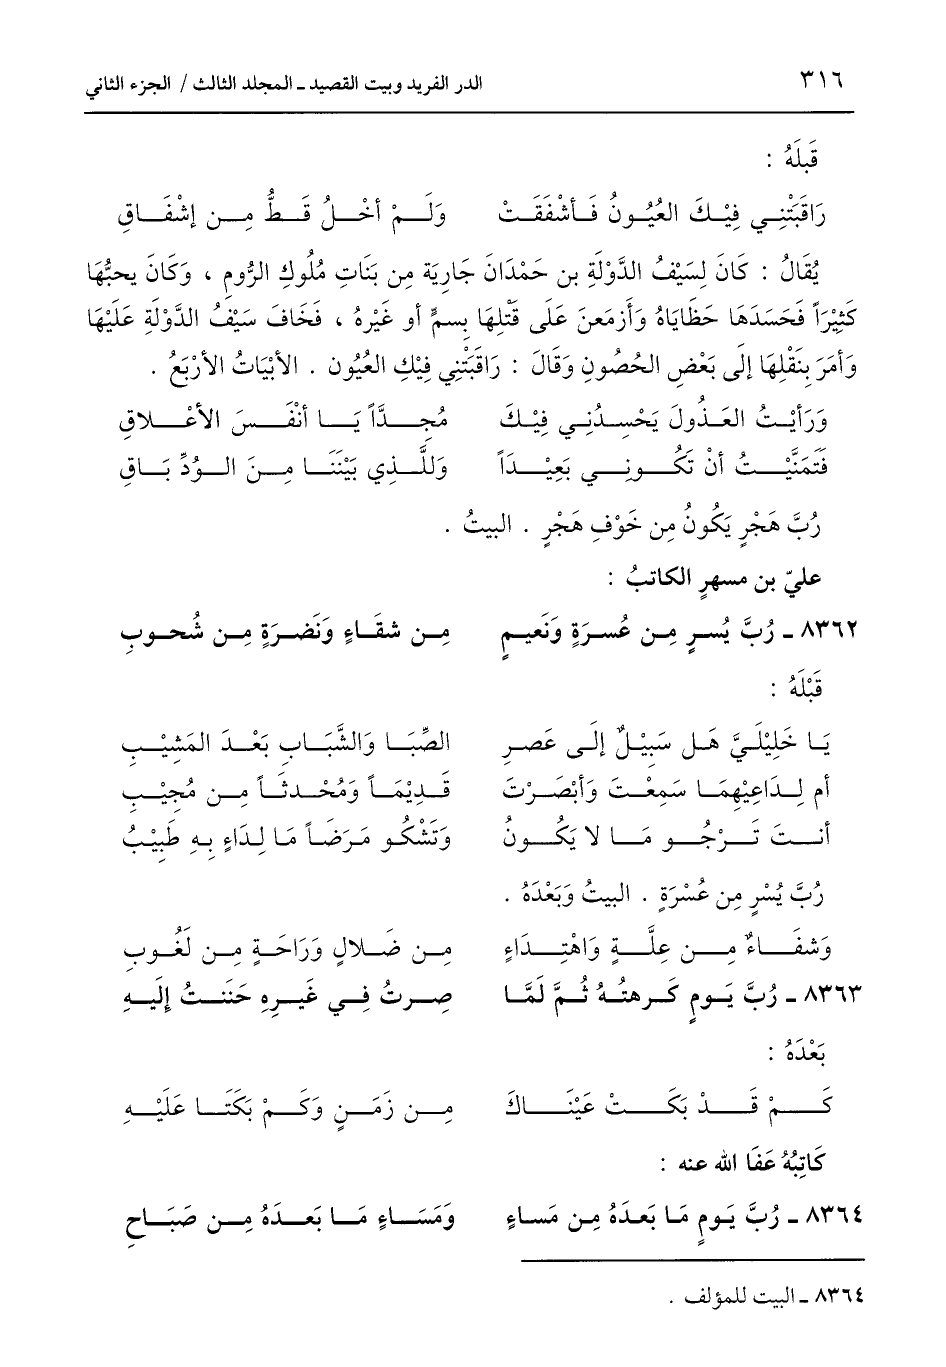 ٣١٦ الدر الفريد وبيت القصيد ـ المجلد الثالث / الجزء الثاني
قَبلَهُ :
رَاقَبَتْنِي فِيْكَ العُيُونُ فَأَشْفَقَتْ وَلَمْ أَخْلُ قَطُّ مِن إِشْفَاقِ
يُقَالُ : كَانَ لِسَيْفُ الدَّوْلَةِ بن حَمْدَانَ جَارِيَة مِن بَنَاتِ مُلُوكِ الرُّومِ ، وَكَانَ يحبُّهَا
كَثِيْرَاً فَحَسَدَهَا حَظَايَاهُ وَأَزمَعنَ عَلَى قَتْلِهَا بِسمٍّ أو غَيْرِهُ ، فَخَافَ سَيْفُ الدَّوْلَةِ عَلَيْهَا
وَأمَرَ بِنَقْلِهَا إِلَى بَعْضِ الحُصُونِ وَقَالَ : رَاقَبَتْنِي فِيْكِ العُيُون . الأَبْيَاتُ الأرْبَعُ .
وَرَأيْتُ العَذُولَ يَحْسِدُنِي فِيْكَ مُجِدَّاً يَا أنْفَسَ الأَعْلاقِ
فَتَمَنَّيْتُ أنْ تَكُونِي بَعِيْدَاً وَللَّذِي بَيْنَنَا مِنَ الوُدِّ بَاقِ
رُبَّ هَجْرٍ يَكُونُ مِن خَوْفِ هَجْرٍ . البيتُ .
عليّ بن مسهرٍ الكاتبُ :
٨٣٦٢ ـ رُبَّ يُسرٍ مِن عُسرَةٍ وَنَعيمٍ مِن شقَاءٍ وَنَضرَةٍ مِن شُحوبِ
قَبْلَهُ :
يَا خَلِيْلَيَّ هَل سَبِيْلٌ إلَى عَصرِ الصِّبَا وَالشَّبَابِ بَعْدَ المَشِيْبِ
أم لِدَاعِيْهِمَا سَمِعْتَ وَأبْصَرْتَ قَدِيْمَاً وَمُحْدثَاً مِن مُجِيْبِ
أنتَ تَرْجُو مَا لا يَكُونُ وَتَشْكُو مَرَضَاً مَا لِدَاءٍ بِهِ طَبِيْبُ
رُبَّ يُسْرٍ مِن عُسْرَةٍ . البيتُ وَبَعْدَهُ .
وَشفَاءٌ مِن عِلَّةٍ وَاهْتِدَاءٍ مِن ضَلالٍ وَرَاحَةٍ مِن لُغُوبِ
٨٣٦٣ ـ رُبَّ يَومٍ كَرهتُهُ ثُمَّ لَمَّا صِرتُ فِي غَيرِهِ حَنَنتُ إِلَيهِ
بَعْدَهُ :
كَمْ قَدْ بَكَتْ عَيْنَاكَ مِن زَمَنٍ وَكَمْ بَكَتَا عَلَيْهِ
كَاتِبُهُ عَفَا الله عنه :
٨٣٦٤ ـ رُبَّ يَومٍ مَا بَعدَهُ مِن مَساءٍ وَمَسَاءٍ مَا بَعدَهُ مِن صَبَاحِ
٨٣٦٤ ـ البيت للمؤلف .